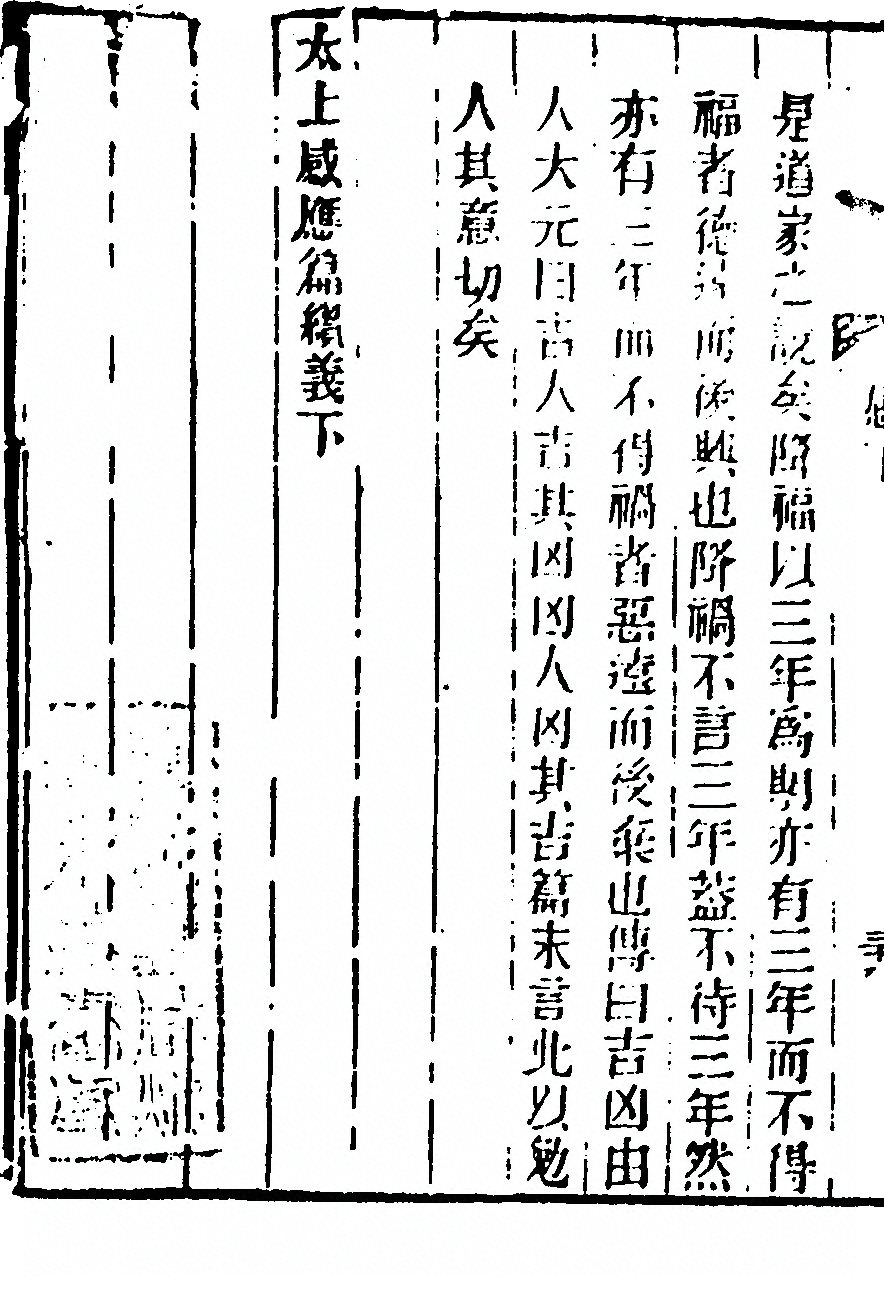 是道家之說矣降福以三年爲期亦有三年而不得
福者德眞而後興也降禍不言三年葢不待三年然
亦有三年而不得禍者惡遠而後棄也傳曰吉凶由
人大元曰吉人吉其凶凶人凶其吉篇末言此以勉
人其意切矣
太上感應篇纘義下